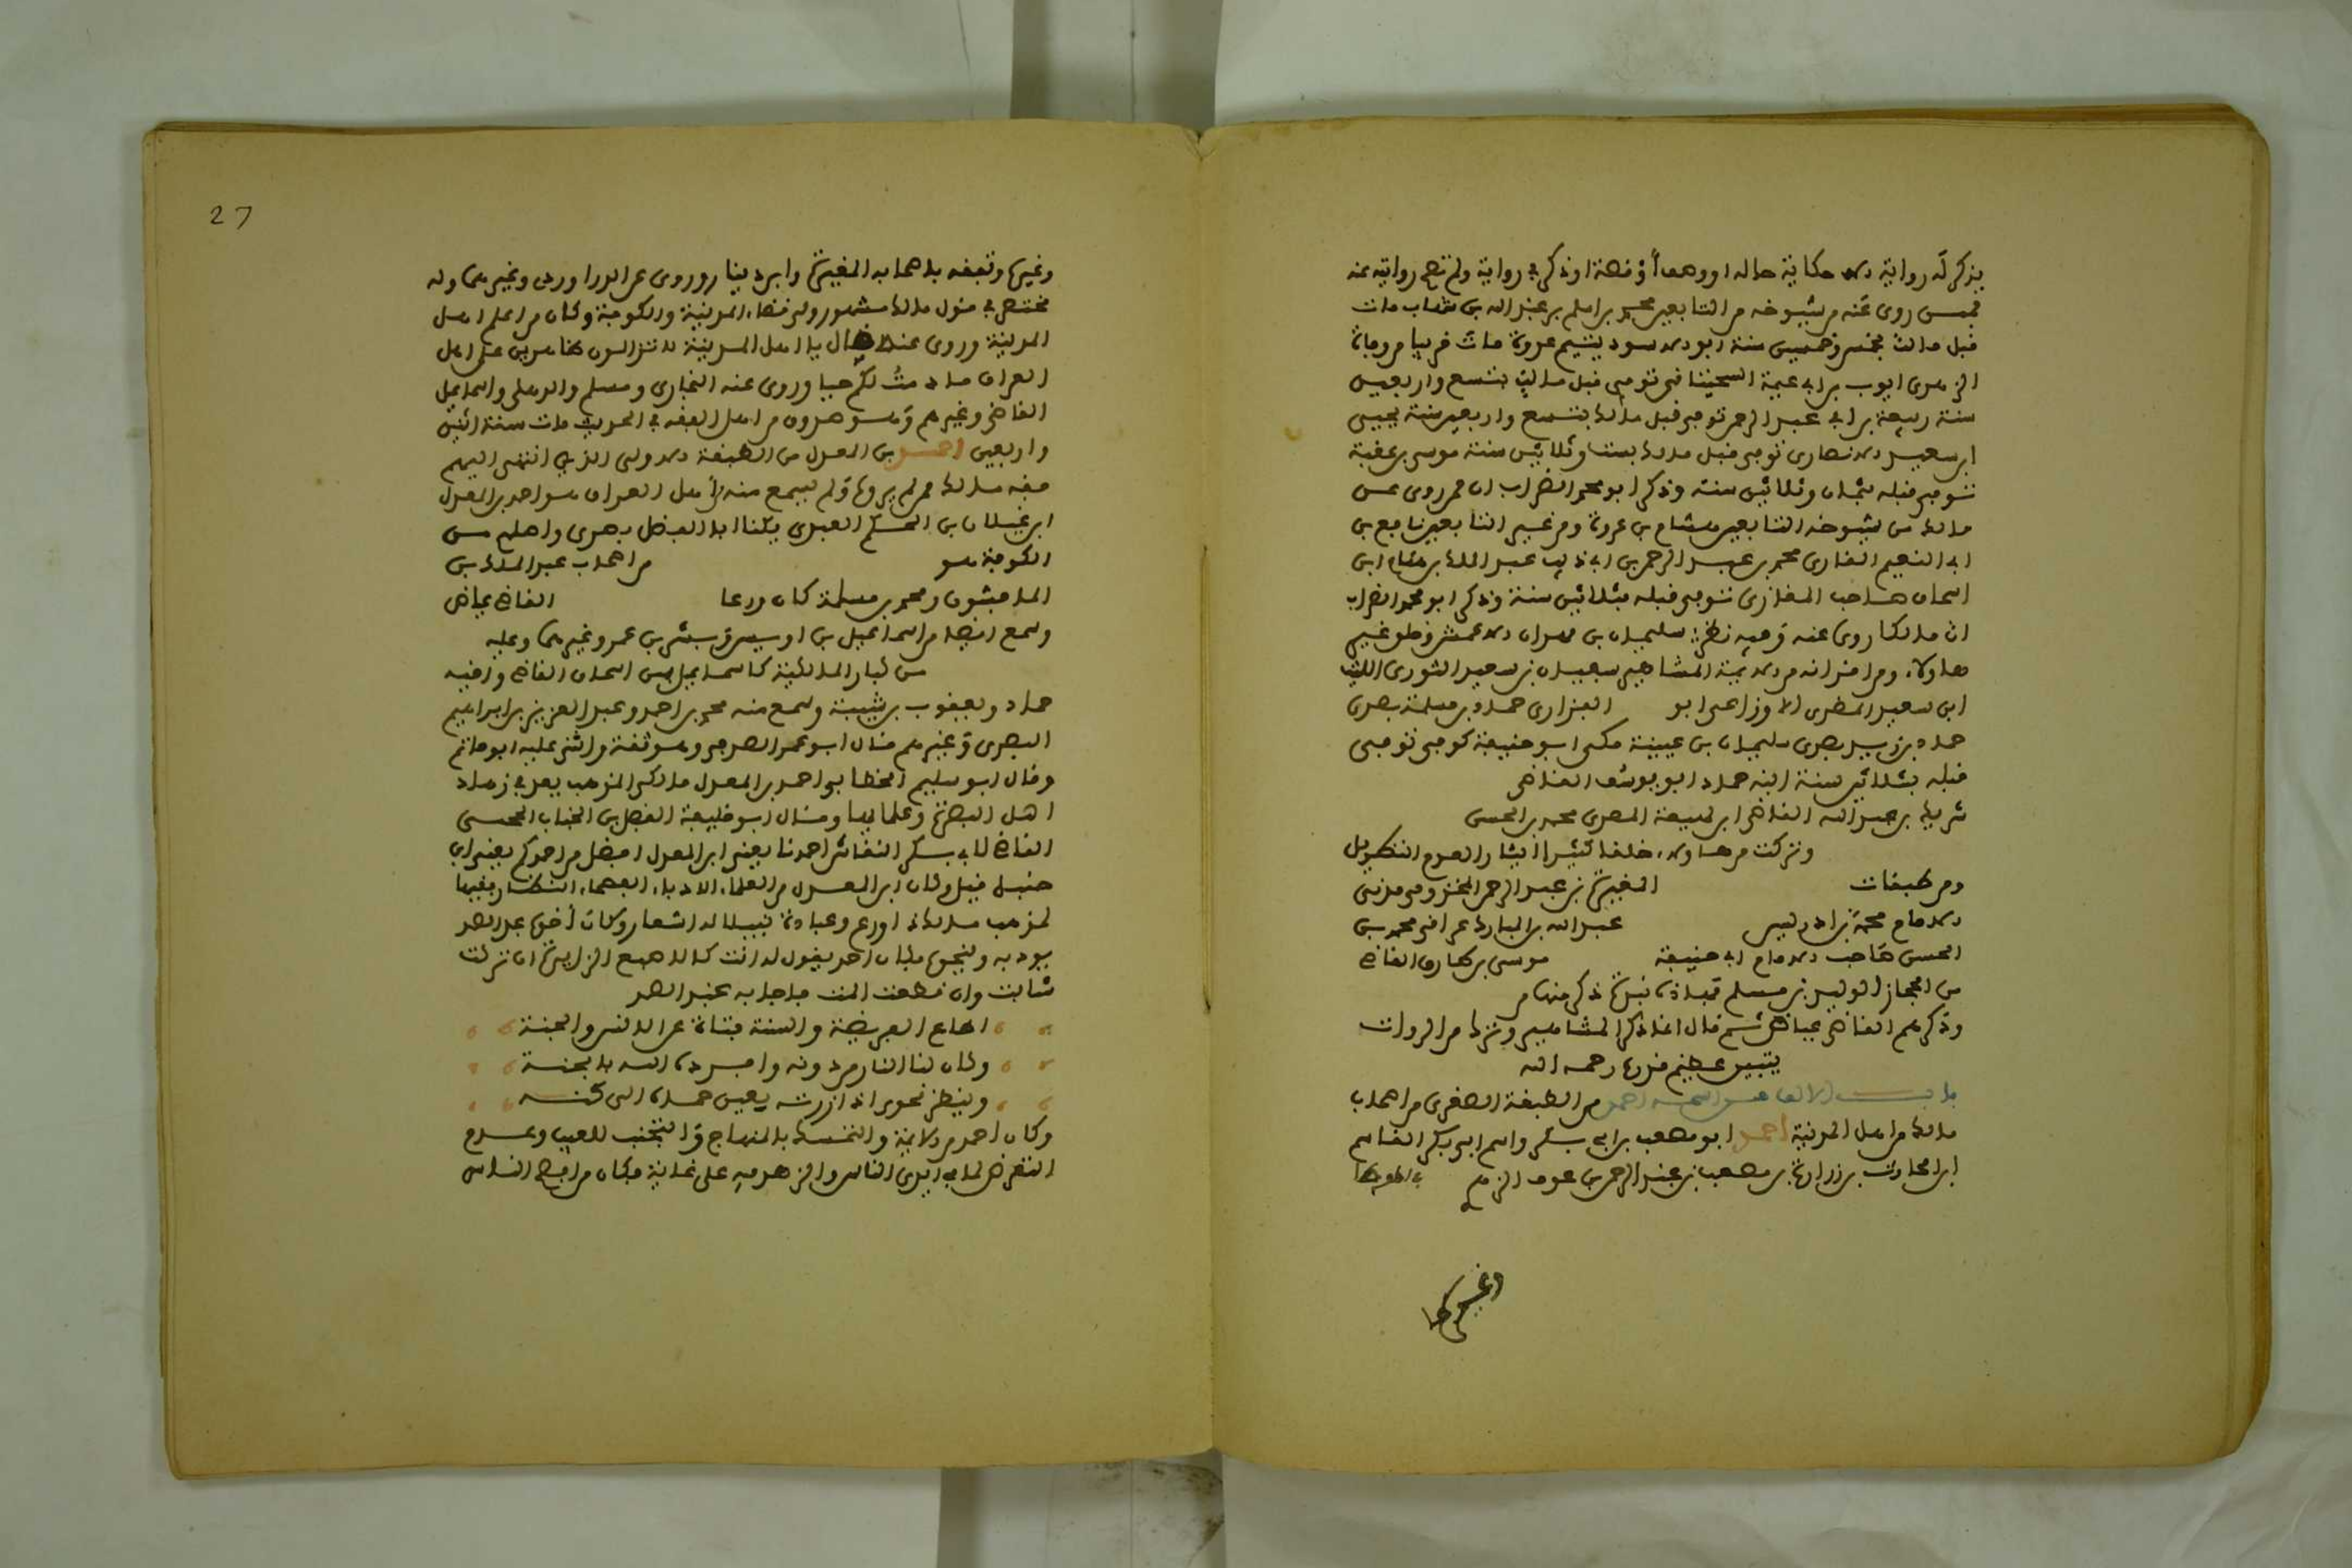 يذكر له رواية الا حكاية حاله او وصفا أو قصة او ذكر في رواية ولم تصح روايته عنه
فممن روى عنه من شيوخه من التابعين محمد بن مسلم بن عبد الله بن شهاب مات
قبل مالك بخمس وخمسين سنة ابو الاسود يتيم عروة مات قريبا من وفاة
الزهري ايوب بن ابي تميمة السختياني توفي قبل مالك بتسع واربعين
سنة ربيعة بن ابي عبد الرحمن توفي قبل مالك بتسع واربعين سنة يحيى
ابن سعيد الانصاري توفي قبل مالك بست وثلاثين سنة موسى بن عقبة
توفي قبله بثمان وثلاثين سنة وذكر ابو محمد الضراب ان ممن روى عن
مالك من شيوخه التابعين هشام بن عروة ومن غير التابعين نافع بن
ابي النعيم القاري محمد بن عبد الرحمن بن ابي ذيب عبد الملك بن
اسحاق صاحب المغازي توفي قبله بثلاثين سنة وذكر ابو محمد الضراب
ان مالكا روى عنه وفيه نظر سليمان بن مهران الاعمش وطو غير
هاولاء ومن اقرانه من الايمة المشاهير سفيان بن سعيد الثوري الليث
ابن سعيد المصري الاوزاعي ابو الفزاري حماد بن سلمة بصري
حماد بن زيد بصري سليمان بن عيينة مكي ابو حنيفة كوفي توفي
قبله بثلاثين سنة ابنه حماد ابو يوسف القاضي
شريك بن عبد الله القاضي ابن لهيعة المصري محمد بن الحسن
وتركت من هاولاء خلقا كثيرا ايثارا لعدم التطويل
ومن طبقات المغيرة بن عبد الرحمن المخزومي مدني
الامام محمد بن ادريس عبد الله بن المبارك عراقي محمد بن
الحسن صاحب الامام ابي حنيفة موسى بن طارق القاضي
من الحجاز الوليد بن مسلم
وذكرهم القاضي عياض ثم قال انما ذكرنا المشاهير وتركنا من الروات
يتبين عظيم قدره رحمه الله
باب الالف من اسمه احمد من الطبقة الصغرى من اصحاب
مالك من اهل المدينة احمد ابو مصعب بن ابي بكر واسم ابي بكر القاسم
ابن الحارث بن زرارة بن مصعب بن عبد الرحمن بن عوف الزهري
وغيرها
27
وغيرها وتفقه باصحابه المغيرة وابن دينار وروى عن الدراوردي وغيرهما وله
مختصر في قول مالك مشهور ولي قضاء المدينة والكوفة وكان من اعلم اهل
المدينة وروى عنه انه قال يا اهل المدينة لا تزالون ظاهرين على اهل
العراق ما دمت لكم حيا وروى عنه البخاري ومسلم والذهلي واسماعيل
القاضي وغيرهم وهو صدوق من اهل الفقه في الحديث مات سنة اثنين
واربعين احمد بن المعدل من الطبقة الاولى الذين انتهى اليهم
فقه مالك ممن لم يره ولم يسمع منه من اهل العراق هو احمد بن المعدل
ابن غيلان بن الحكم العبدي يكنا ابا الفضل بصري واصله من
الكوفة هو من اصحاب عبد الملك بن
الماجشون ومحمد بن مسلمة كان ورعا القاضي عياض
وسمع ايضا من اسماعيل بن ابي اويس وبشر بن عمر وغيرهما وعليه
من كبار المالكية كاسماعيل بن اسحاق القاضي واخيه
حماد ويعقوب بن شيبة وسمع منه محمد بن احمد وعبد العزيز بن ابراهيم
البصري وغيرهم قال ابو عمر الصدفي وهو ثقة واثنى عليه ابو حاتم
وقال ابو سليم الخطابي احمد بن المعدل مالكي المذهب يعد في زهاد
اهل البصرة وعلمائها وقال ابو خليفة الفضل بن الحباب الجمحي
القاضي لابي بكر النقاش احمدنا يعني ابن المعدل افضل من احمدكم يعني ابن
حنبل قيل وكان ابن المعدل من العلماء الادباء الفصحاء النظار فقيها
لمذهب مالك ذا ورع وعبادة نبيلا له اشعار وكان أخوه عبد الصمد
يوذيه ويهجوه فكان احمد يقول له انت كالاصبع الزايدة ان تركت
شانت وان قطعت المت فاجابه عبد الصمد
اضاع الفريضة والسنة فتاه على الانس والجنة
وكان لنا النار من دونه وافرده الله بالجنة
وينظر نحوي اذا زرته بعين حماة الى كنه
وكان احمد من الابهة والتمسك بالمنهاج والتجنب للعيب وعدم
التعرض لما في ايدي الناس والزهد فيه على غاية فكان من افصح الناس